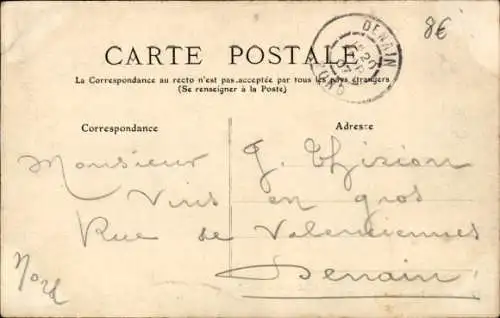 8€
CARTE POSTALE
La Correspondance au recto n'est pas acceptée par tous les pays étrangers
(Se renseigner à la Poste)
DENAIN
NORD
Correspondance
Adresse
Monsieur G. Thirion
Vins en gros
Rue de Valenciennes
Nord
Denain